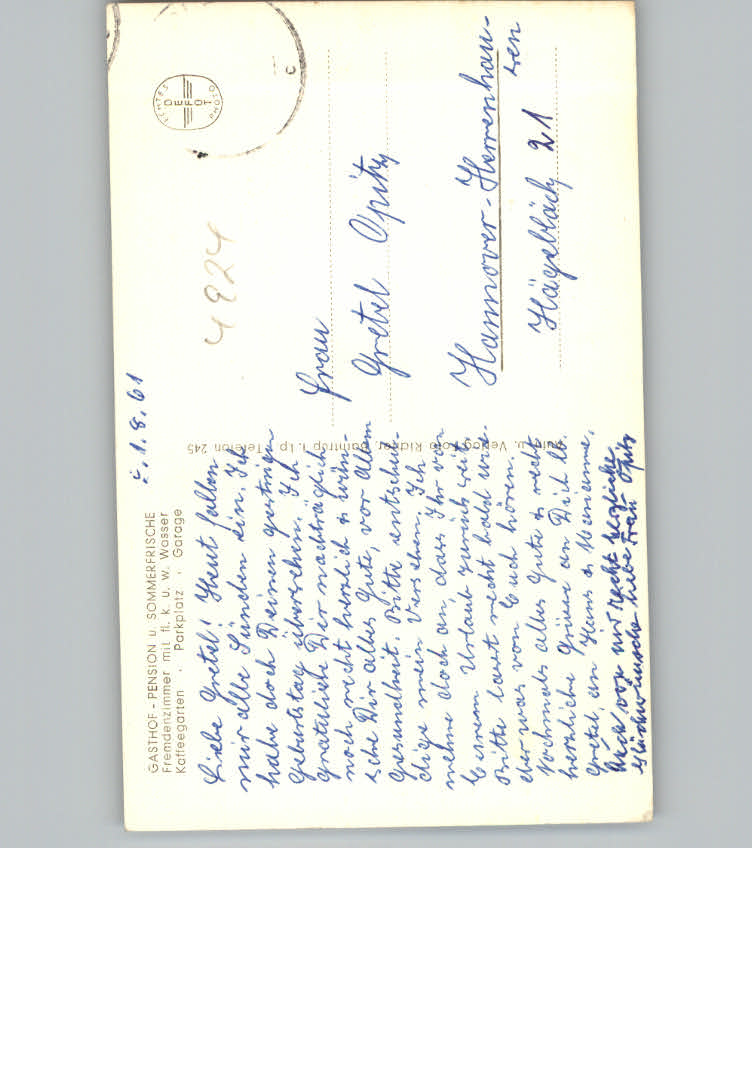 GASTHOF - PENSION u. SOMMERFRISCHE
Fremdenzimmer mit fl. k. u. w. Wasser
Kaffeegarten · Parkplatz · Garage
1.8.61
Liebe Gretel! Heut fallen
mir alle Sünden ein. Ich
habe doch Deinen gestrigen
Geburtstag übersehen. Ich
gratuliere Dir nachträglich
noch recht herzlich & wün-
sche Dir alles Gute, vor allem
Gesundheit. Bitte entschul-
dige mein Versehen. Ich
nehme doch an dass Ihr von
Eurem Urlaub zurück seit
Bitte lasst recht bald wie-
der was von Euch hören.
Nochmals alles Gute & recht
herzliche Grüsse an Dich lb.
Gretel, an Hans & Marianne.
Auch von mir recht herzliche
Glückwünsche liebe Frau Opitz
Verlag Foto Richter, Barntrup i. Lp. Telefon 245
ECHTES
DEFOT
PHOTO
4924
Frau
Gretel Opitz
Hannover-Herrenhau-
sen
21